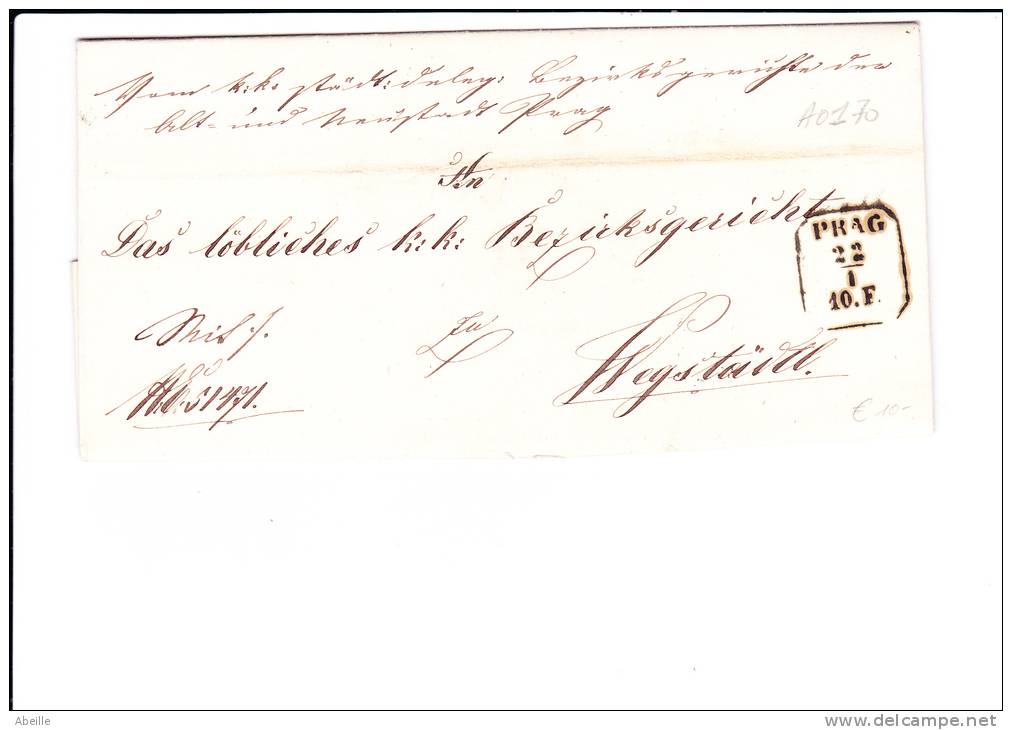 Vom k: k: städt: deleg: Bezirksgerichte der
Alt- und Neustadt Prag
A0170
An
Das löbliches k: k: Bezirksgericht
PRAG
22
1
10. F.
zu
Wegstädtl.
51471.
€ 10-
Abeille
www.delcampe.net